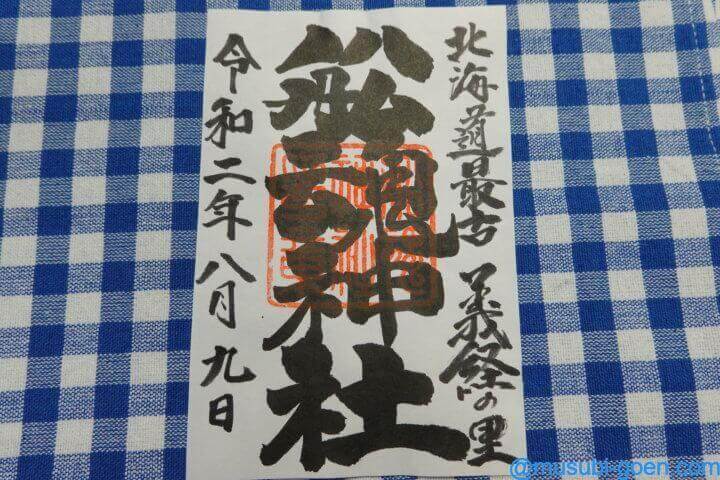 北海道最古 義経の里
舩魂神社
令和二年八月九日
@musubi-goen.com